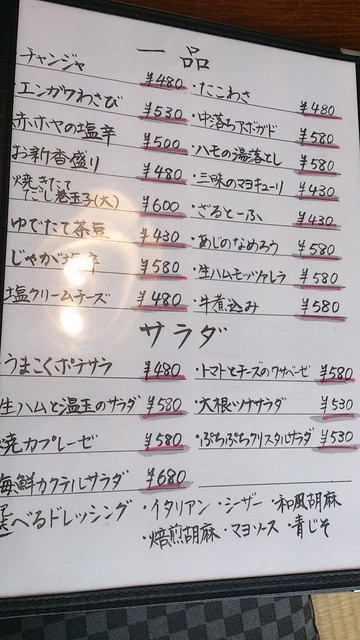 一品
・チャンジャ ¥480
・エンガワわさび ¥530
赤ホヤの塩辛 ¥500
お新香盛り ¥480
焼きたてだし巻玉子(大) ¥600
ゆでたて茶豆 ¥430
じゃが塩辛 ¥580
塩クリームチーズ ¥480
・たこわさ ¥480
・中落ちアボガド ¥580
・ハモの湯落とし ¥580
・三味のマヨキューリ ¥430
・ざるとーふ ¥430
・あじのなめろう ¥580
・生ハムモッツァレラ ¥580
・牛煮込み ¥580
サラダ
うまこくポテサラ ¥480
生ハムと温玉のサラダ ¥580
焼カプレーゼ ¥580
海鮮カクテルサラダ ¥680
・トマトとチーズのワサベーゼ ¥580
・大根ツナサラダ ¥530
・ぷちぷちクリスタルサラダ ¥530
選べるドレッシング ・イタリアン ・シーザー ・和風胡麻
・焙煎胡麻 ・マヨソース ・青じそ